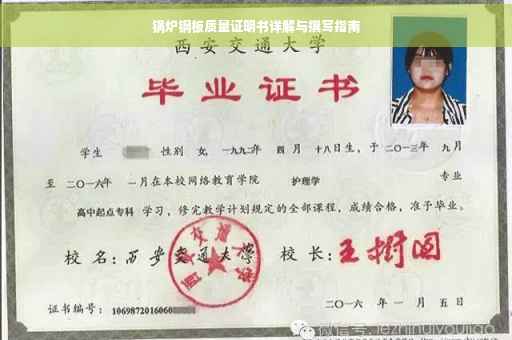 锅炉钢板质量证明书详解与撰写指南
西安交通大学
毕业证书
学生 性别 女,一九九二年 四月 十八日生,于二〇一三年 九月
至 二〇一六年 一月在本校网络教育学院 护理学 专业
高中起点专科 学习,修完教学计划规定的全部课程,成绩合格,准予毕业。
校名:西安交通大学 校长:王树国
西安交通大学
证书编号:1069872016060
二〇一六年 一月 五日
微信号: